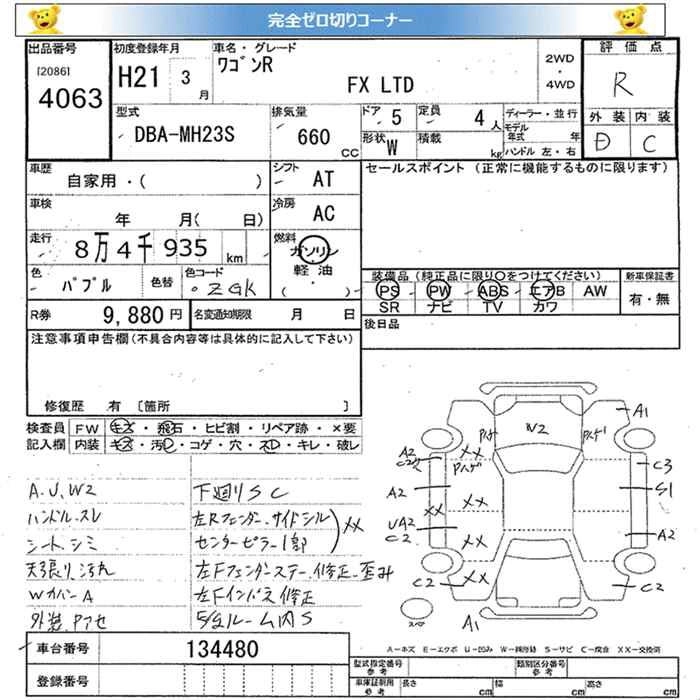 完全ゼロ切りコーナー
出品番号 初度登録年月 車名・グレード 評価点
[2086] H21 3月 ワゴンR 2WD・4WD R
4063 FX LTD
型式 排気量 ドア 5 定員 4人 ディーラー・並行 外装 内装
DBA-MH23S 660 CC 形状 W 積載 kg モデル年式 年 D C
ハンドル 左・右
車歴 自家用・( ) シフト AT セールスポイント (正常に機能するものに限ります)
車検 年 月( 日) 冷房 AC
走行 8万4千935 km 燃料 ガソリン・軽油 ( ・ )
色 パプル 色替 色コード ZGK 装備品 (純正品に限り○をつけてください) 新車保証書
PS PW ABS エアB AW 有・無
SR ナビ TV カワ
R券 9,880円 名変通知期限 月 日 後日品
注意事項申告欄(不具合内容等は具体的に記入して下さい)
修復歴 有 [箇所 ]
検査員 FW キズ・飛石・ヒビ割・リペア跡・×要
記入欄 内装 キズ・汚レ・コゲ・穴・スレ・キレ・破レ
A.U.W2 下廻りSC
ハンドル.スレ 左Rフェンダー.サイドシル
シート.シミ センターピラー1部 XX
天張り汚れ 左Fフェンダーステー.修正.歪み
WカバーA 左Fインパネ修正
外装.Pアセ ルーム内S
A1
W2
Pハゲ Pハゲ
XX Pハゲ
A2 C2 C3
A2 XX S1
XX
UA2 C2 XX A2
C2 XX C2
スペア A1
A-キズ E-エクボ U-凹み W-補修跡 S-サビ C-腐食 XX-交換済
車台番号 134480 型式指定番号 参考 類別区分番号 参考
登録番号 車庫証明用 参考 長さ cm 幅 cm 高さ cm